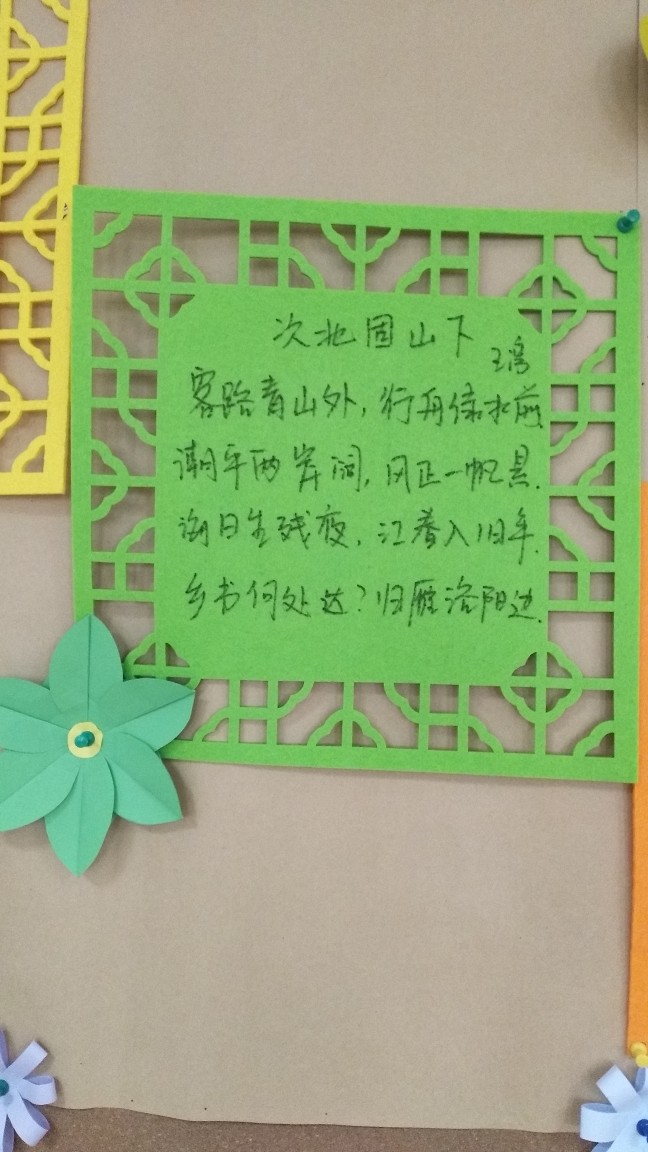 次北固山下
王湾
客路青山外，行舟绿水前
潮平两岸阔，风正一帆悬.
海日生残夜，江春入旧年.
乡书何处达？归雁洛阳边.